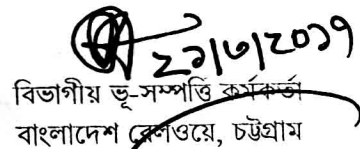 ২১/৩/২০১৭
বিভাগীয় ভূ-সম্পত্তি কর্মকর্তা
বাংলাদেশ রেলওয়ে, চট্টগ্রাম